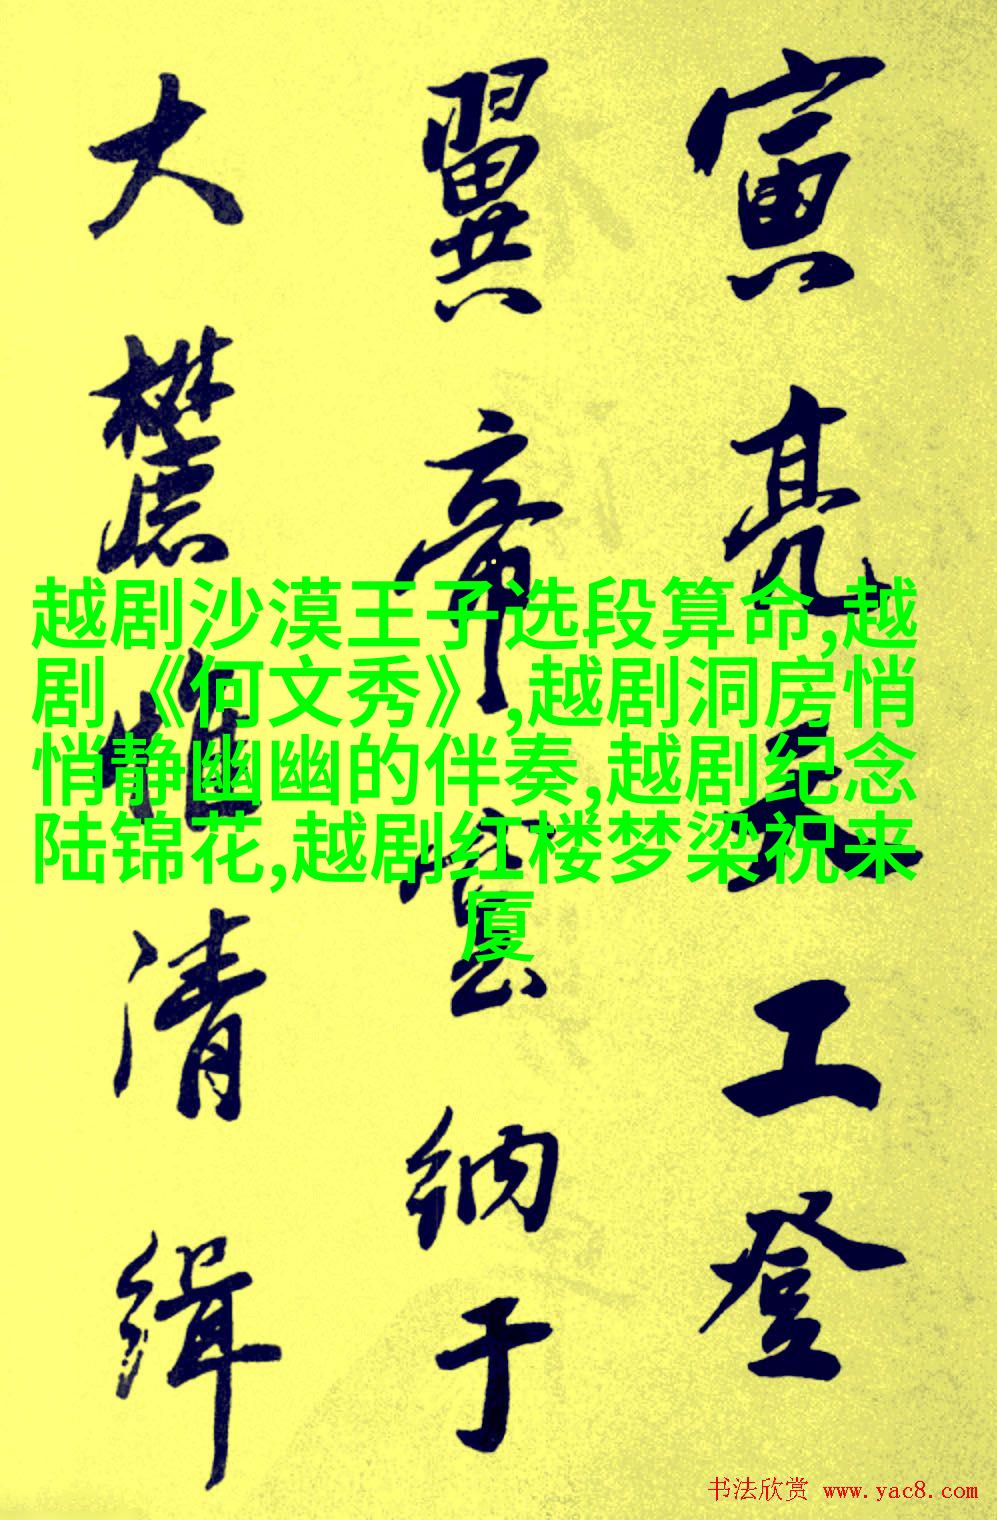 寅亮天工登
翼帝室纳于
大麓惟清缉
越剧沙漠王子选段算命,越
剧《何文秀》,越剧洞房悄
悄静幽幽的伴奏,越剧纪念
陆锦花,越剧红楼梦梁祝来
厦
书法欣赏 www.yac8.com